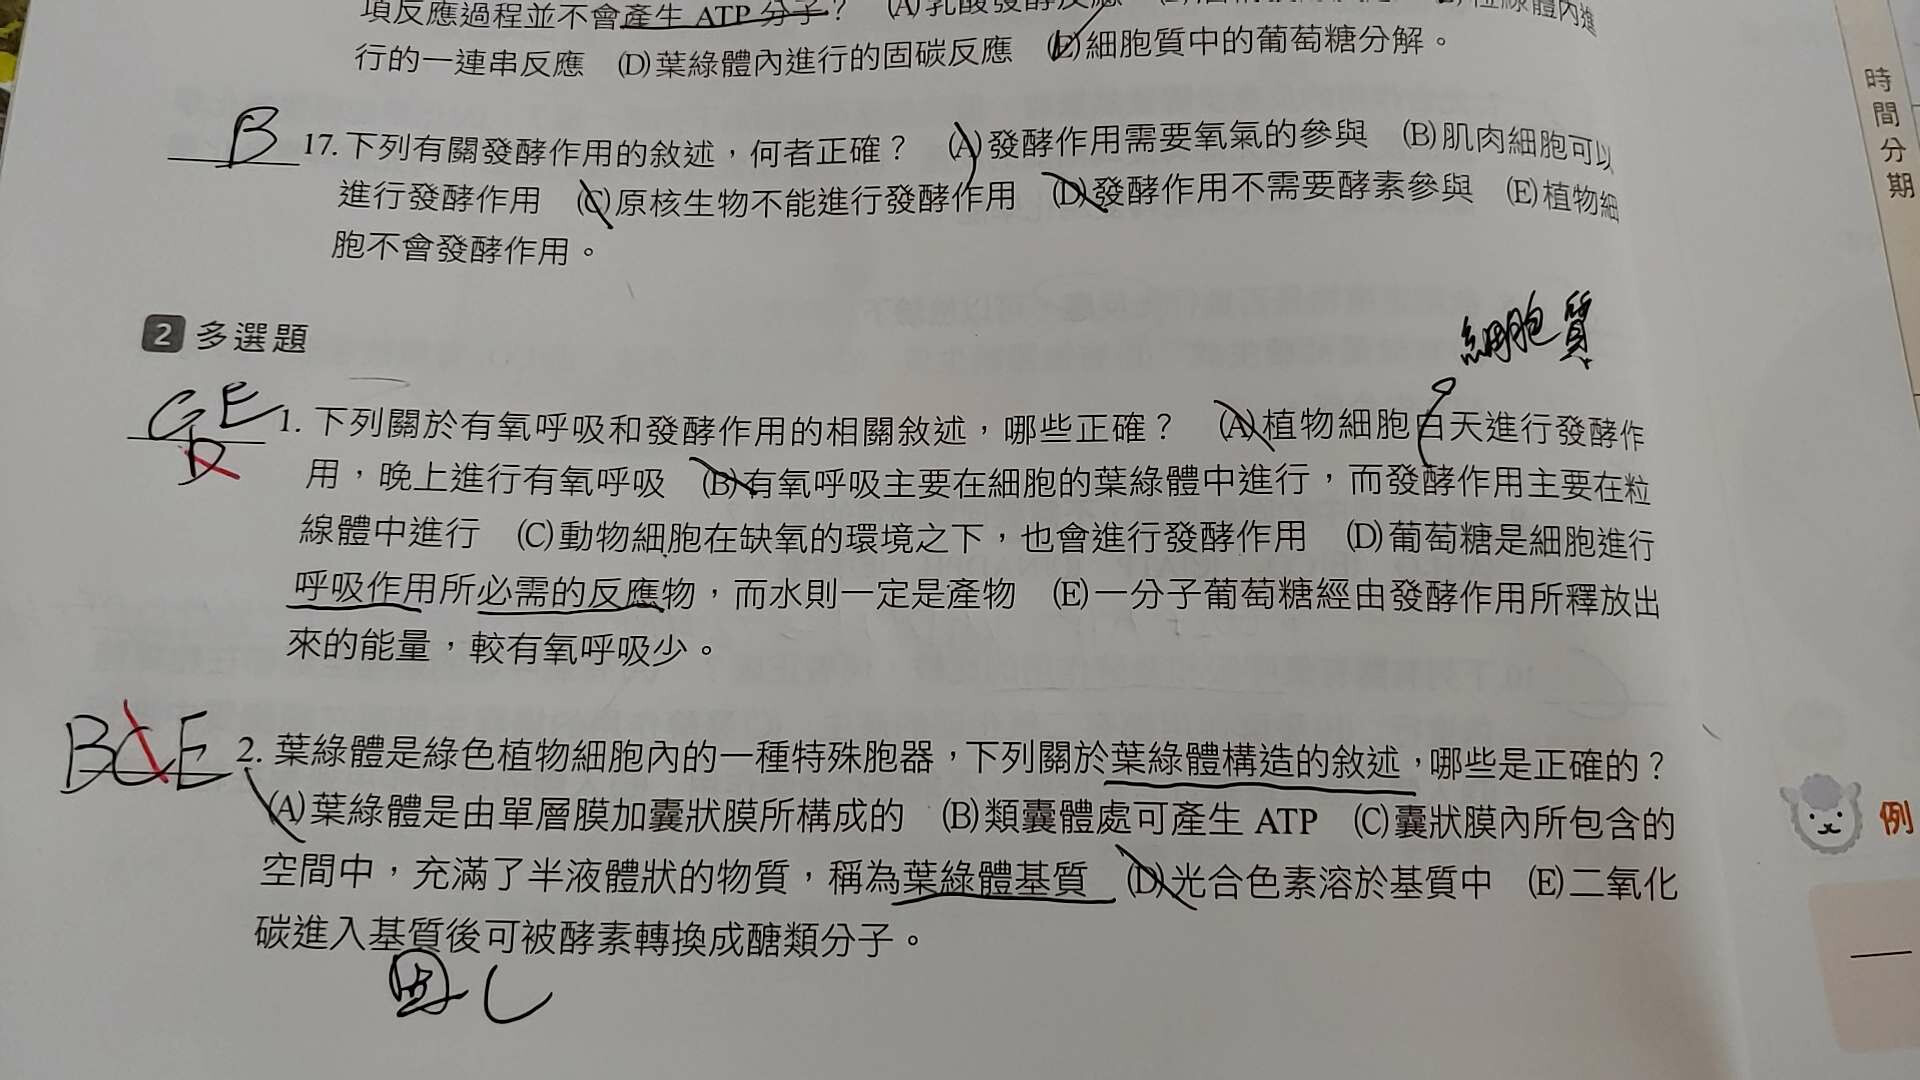 項反應過程並不會產生 ATP 分子？ (A)乳酸發酵反應
粒線體內進
行的一連串反應 (D)葉綠體內進行的固碳反應 (E)細胞質中的葡萄糖分解。
B 17. 下列有關發酵作用的敘述，何者正確？ (A)發酵作用需要氧氣的參與 (B)肌肉細胞可以
進行發酵作用 (C)原核生物不能進行發酵作用 (D)發酵作用不需要酵素參與 (E)植物細
胞不會發酵作用。
2 多選題
細胞質
CE 1. 下列關於有氧呼吸和發酵作用的相關敘述，哪些正確？ (A)植物細胞白天進行發酵作
D
用，晚上進行有氧呼吸 (B)有氧呼吸主要在細胞的葉綠體中進行，而發酵作用主要在粒
線體中進行 (C)動物細胞在缺氧的環境之下，也會進行發酵作用 (D)葡萄糖是細胞進行
呼吸作用所必需的反應物，而水則一定是產物 (E)一分子葡萄糖經由發酵作用所釋放出
來的能量，較有氧呼吸少。
BCE 2. 葉綠體是綠色植物細胞內的一種特殊胞器，下列關於葉綠體構造的敘述，哪些是正確的？
(A)葉綠體是由單層膜加囊狀膜所構成的 (B)類囊體處可產生 ATP (C)囊狀膜內所包含的
空間中，充滿了半液體狀的物質，稱為葉綠體基質 (D)光合色素溶於基質中 (E)二氧化
碳進入基質後可被酵素轉換成醣類分子。
固
時間分期
例